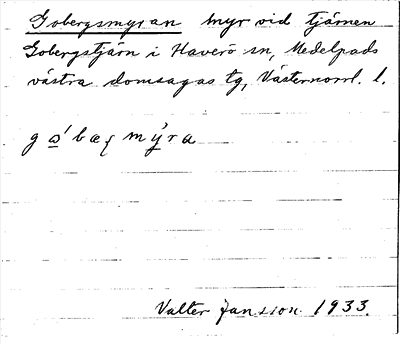 Gobergsmyran myr vid tjärnen
Gobergstjärn i Haverö sn, Medelpads
västra domsagas tg, Västernorrl. l.
Valter Jansson 1933.